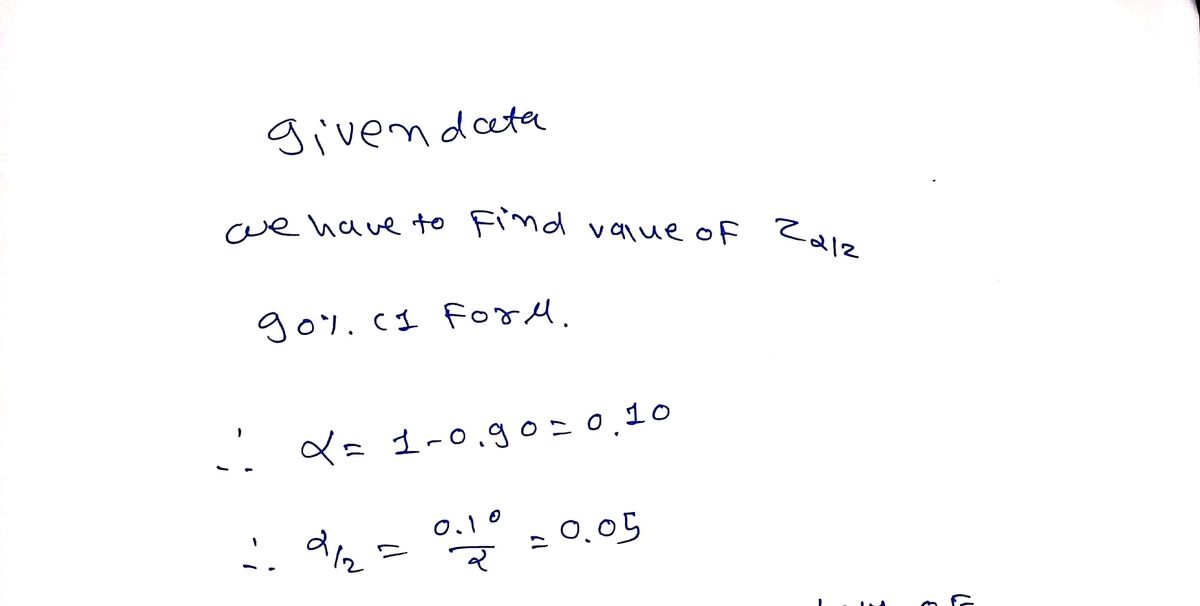 given data
we have to Find value of Zα/2
90%. CI For μ.
∴ α = 1-0.90 = 0.10
∴ α/2 = 0.10/2 = 0.05